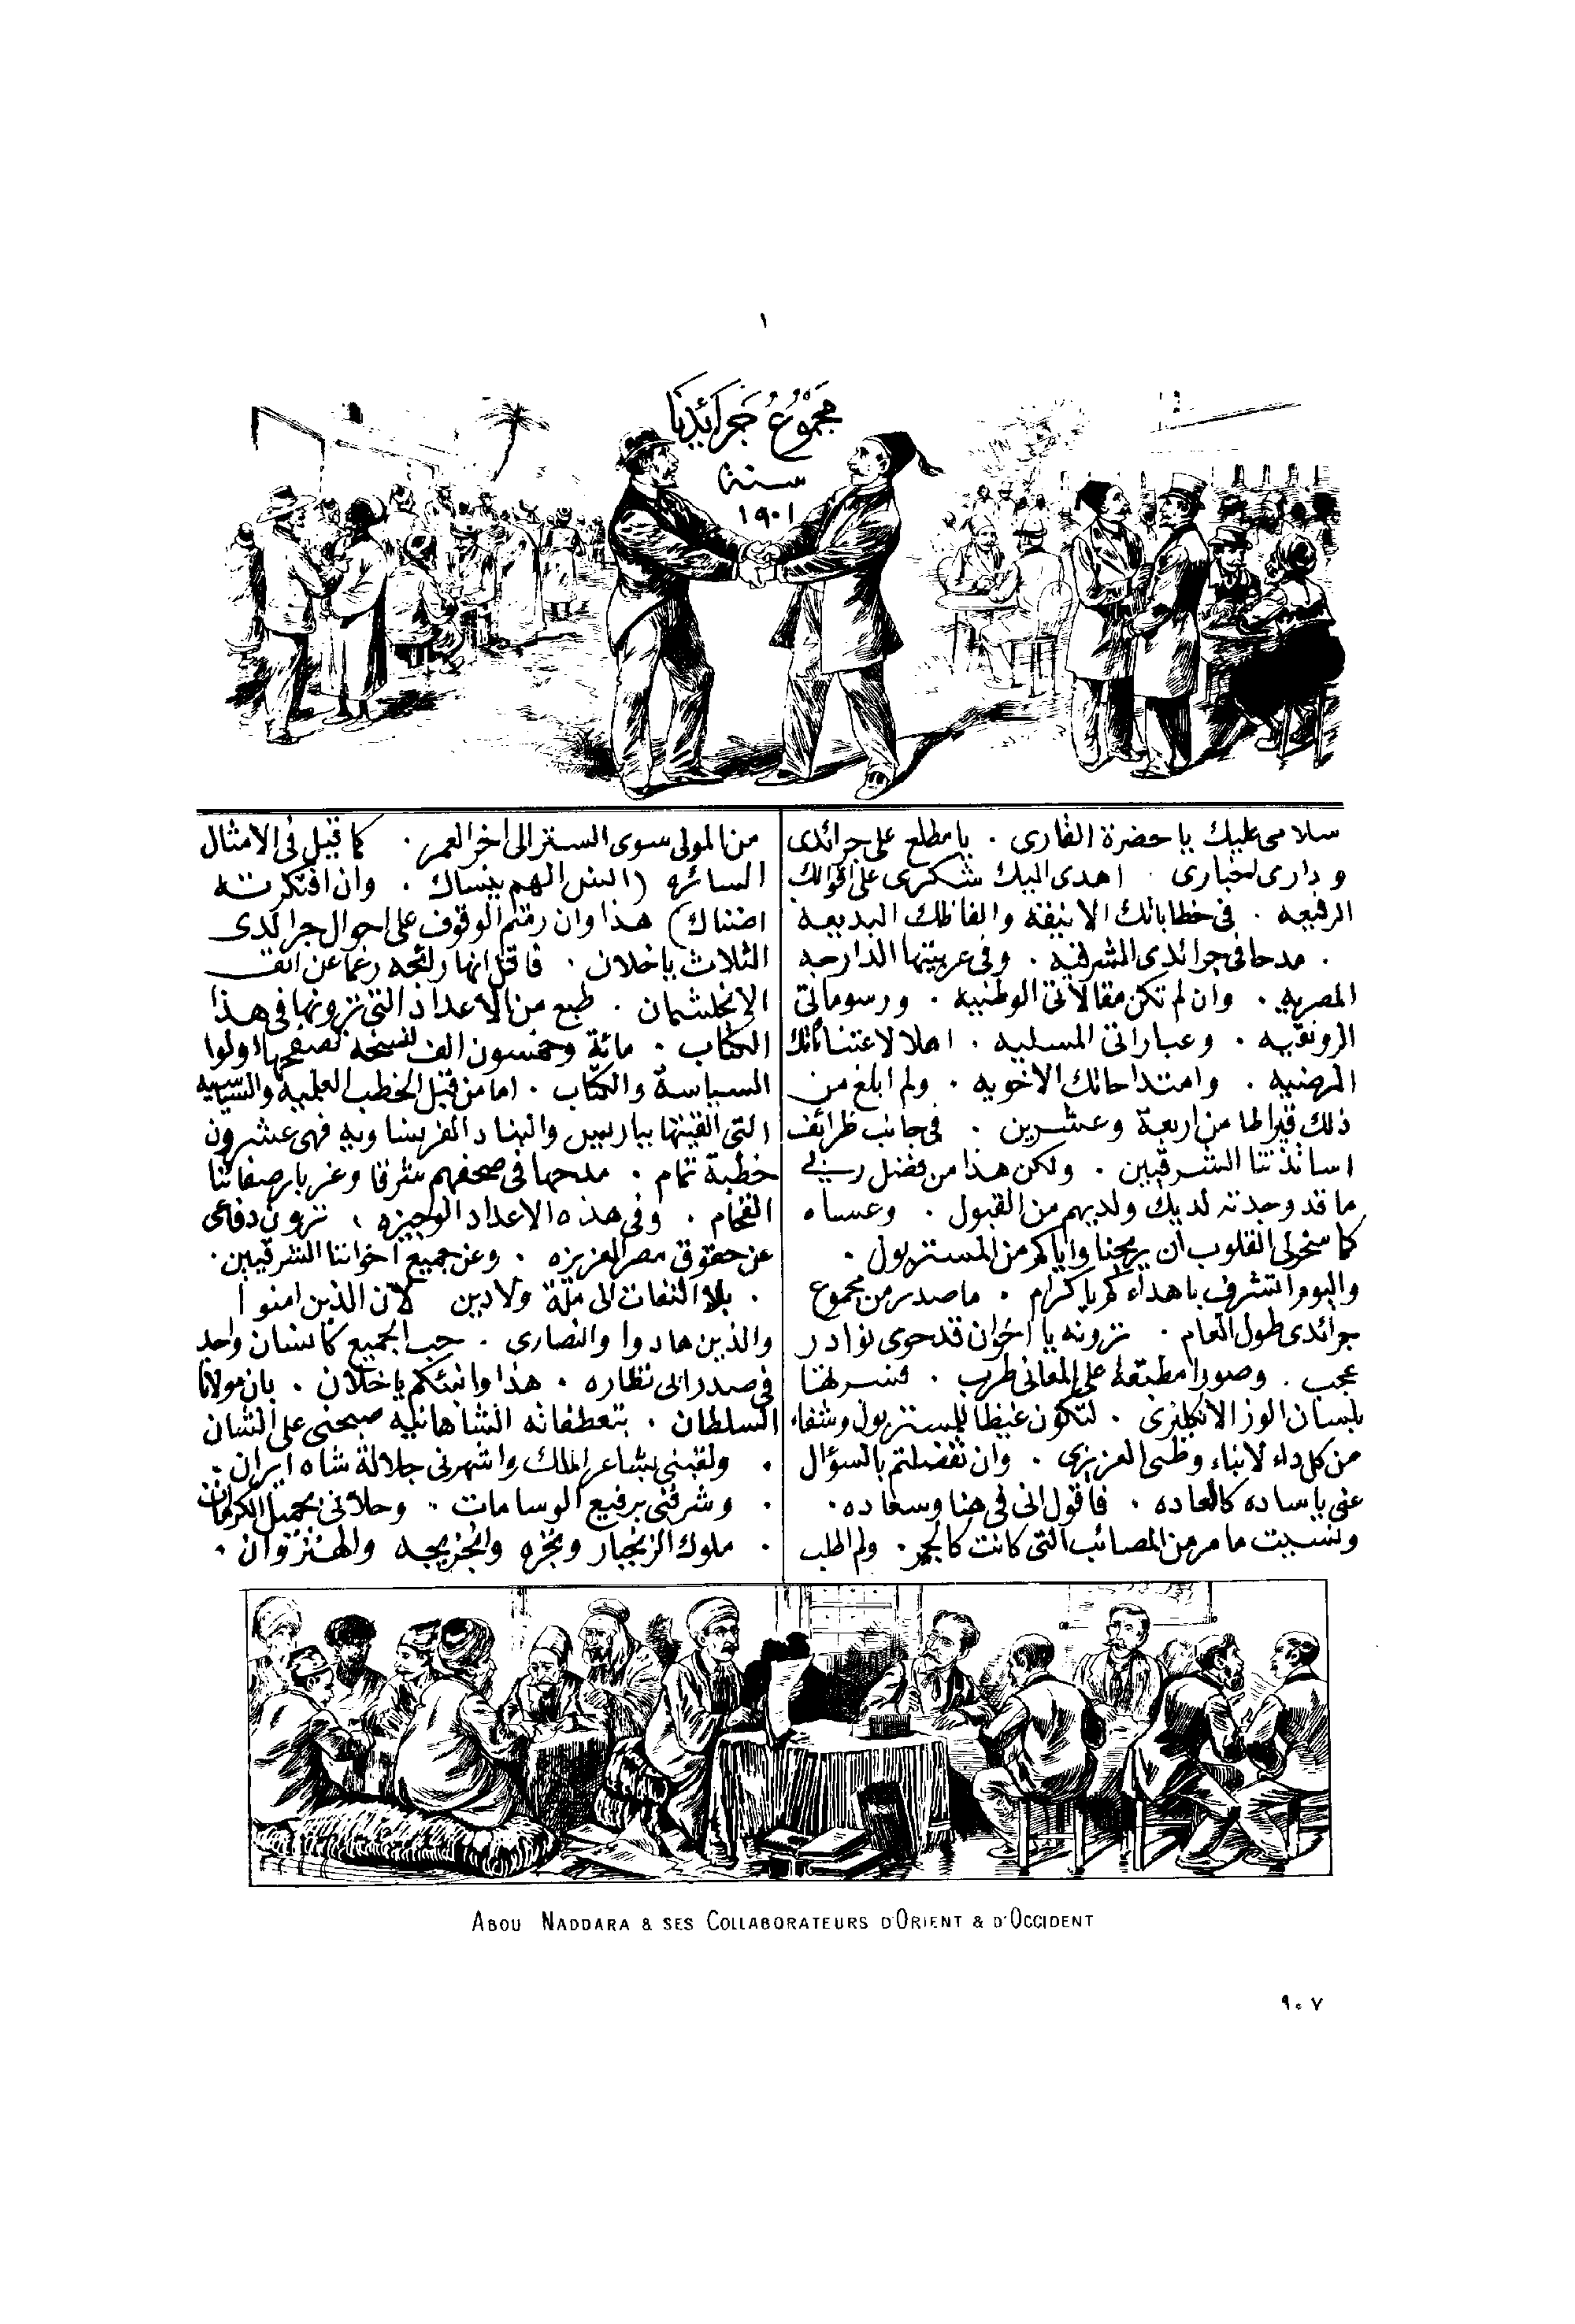 ١
مجموع جرائدنا
سنة
١٩٠١
سلامى عليك يا حضرة القارى . يا مطلع على جرائدى
و دارى اخبارى . اهدى اليك شكرى على اقوالك
الرفيعه . فى خطاباتك الانيقة والفاظك البديعه
. مدحا فى جرائدى المشرقيه . وفى عربيتها الدارجه
المصريه . وان لم تكن مقالاتى الوطنيه . ورسوماتى
الرونقيه . وعباراتى المسليه . اهلا لاعتناآتك
المرضيه . وامتداحاتك الاخويه . ولم ابلغ من
ذلك قيراطا من اربعة وعشرين . فى جانب ظرائف
اساتذتنا الشرقيين . ولكن هذا من فضل ربى
ما قد وجدته لديك ولديهم من القبول . وعساه
كما سخر لى القلوب ان يريحنا واياكم من المستر بول .
واليوم اتشرف باهداءكم يا كرام . ما صدر من مجموع
جرائدى طول العام . ترونه يا اخوان قد حوى نوادر
عجب . وصورا مطبقة على المعانى طرب . فنسرلهتا
بلسان الوز الانكليزى . لتكون غيظا للمستر بول وشفاء
من كل داء لابناء وطنى العزيزى . وان تفضلتم بالسؤال
عنى يا ساده كالعاده . فاقول انى فى هنا وسعاده .
ونسيت ما مر من المصائب التى كانت كالجمر . ولم اطلب
من المولى سوى الستر الى اخر العمر . كما قيل فى الامثال
السائره (انس الهم ينساك . وان افتكرته
اضناك) هذا وان رمتم الوقوف على احوال جرائدى
الثلاث يا خلان . فاقل انها رائجه رغما عن انف
الانجلشمان . طبع من الاعداد التى ترونها فى هذا
الكتاب . مائة وخمسون الف نسخه تصفحها اولوا
السياسة والكتاب . اما من قبل الخطب العلميه والسياسيه
التى القيتها بباريس والبلاد الفرنساويه فهى عشرون
خطبة تمام . مدحها فى صحفهم شرقا وغربا رصفائنا
الفخام . وفى هذه الاعداد الوجيزه ، ترون دفاعى
عن حقوق مصر العزيزه . وعن جميع اخواننا الشرقيين .
. بلا التفات الى ملة ولا دين لان الذين امنوا
والذين هادوا والنصارى . حب الجميع كانسان واحد
فى صدر ابى نظاره . هذا وانبئكم يا خلان . بان مولانا
السلطان . بتعطفاته الشاهانيه صبحنى على الشان
. ولقبنى بشاعر الملك واشهرنى جلالة شاه ايران .
. وشرفنى برفيع الوسامات . وحلانى بجميل الكرمات
. ملوك الزنجبار ونجره والجزيجه والهنزوان .
ABOU NADDARA & SES COLLABORATEURS D'ORIENT & D'OCCIDENT
٩٠٧